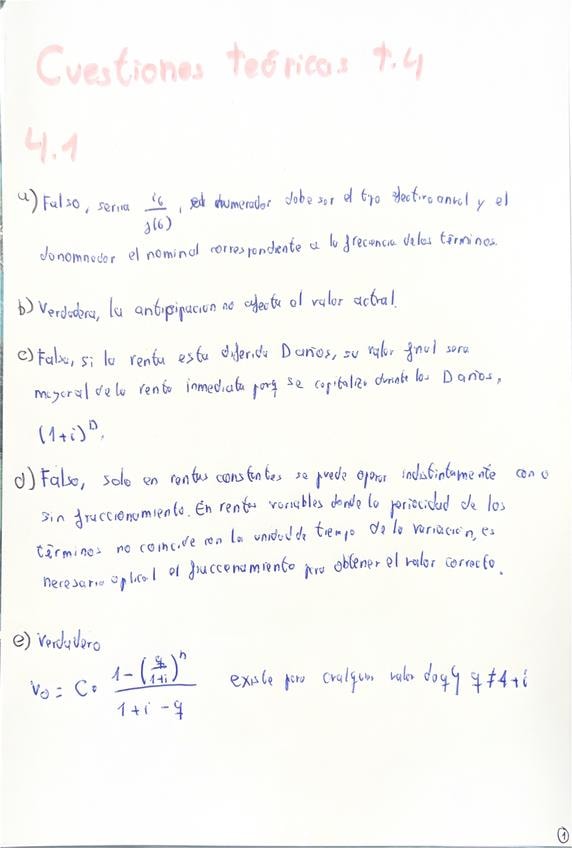 Cuestiones teóricas T.4
4.1
a) Falso, sería i6 / J(6), el numerador debe ser el tipo efectivo anual y el
donomnador el nominal correspondiente a la frecuencia de los términos.
b) Verdadera, la antipipacion no afecta al valor actual.
c) Falso, si la renta esta diferida D años, su valor final sera
mayor al de la renta inmediata porq se capitaliza durante los D años,
(1+i)^D.
d) Falso, solo en rentas constantes se puede operar indistintamente con o
sin fraccionamiento. En rentas variables donde la periocidad de los
términos no coincide con la unidad de tiempo de la variación, es
necesario aplicar el fraccenamiento para obtener el valor correcto.
e) Verdadero
V0 = C · (1 - (q/(1+i))^n) / (1 + i - q) existe para cualquier valor de q y q ≠ 1+i
1